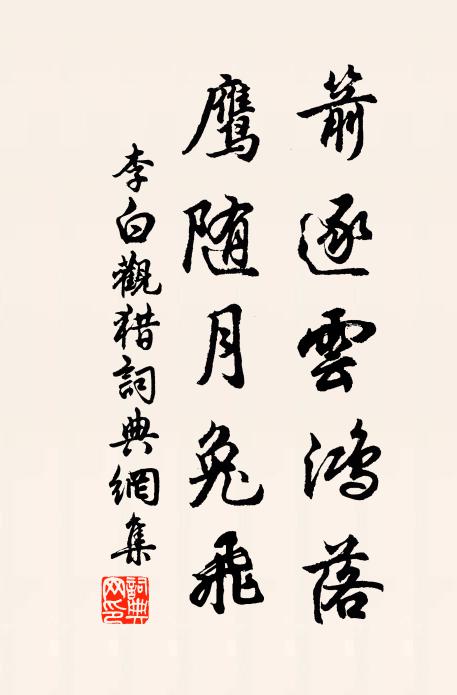 箭逐雲鴻落
鷹随月兔飛
李白觀猎詞典網集
詞典網印